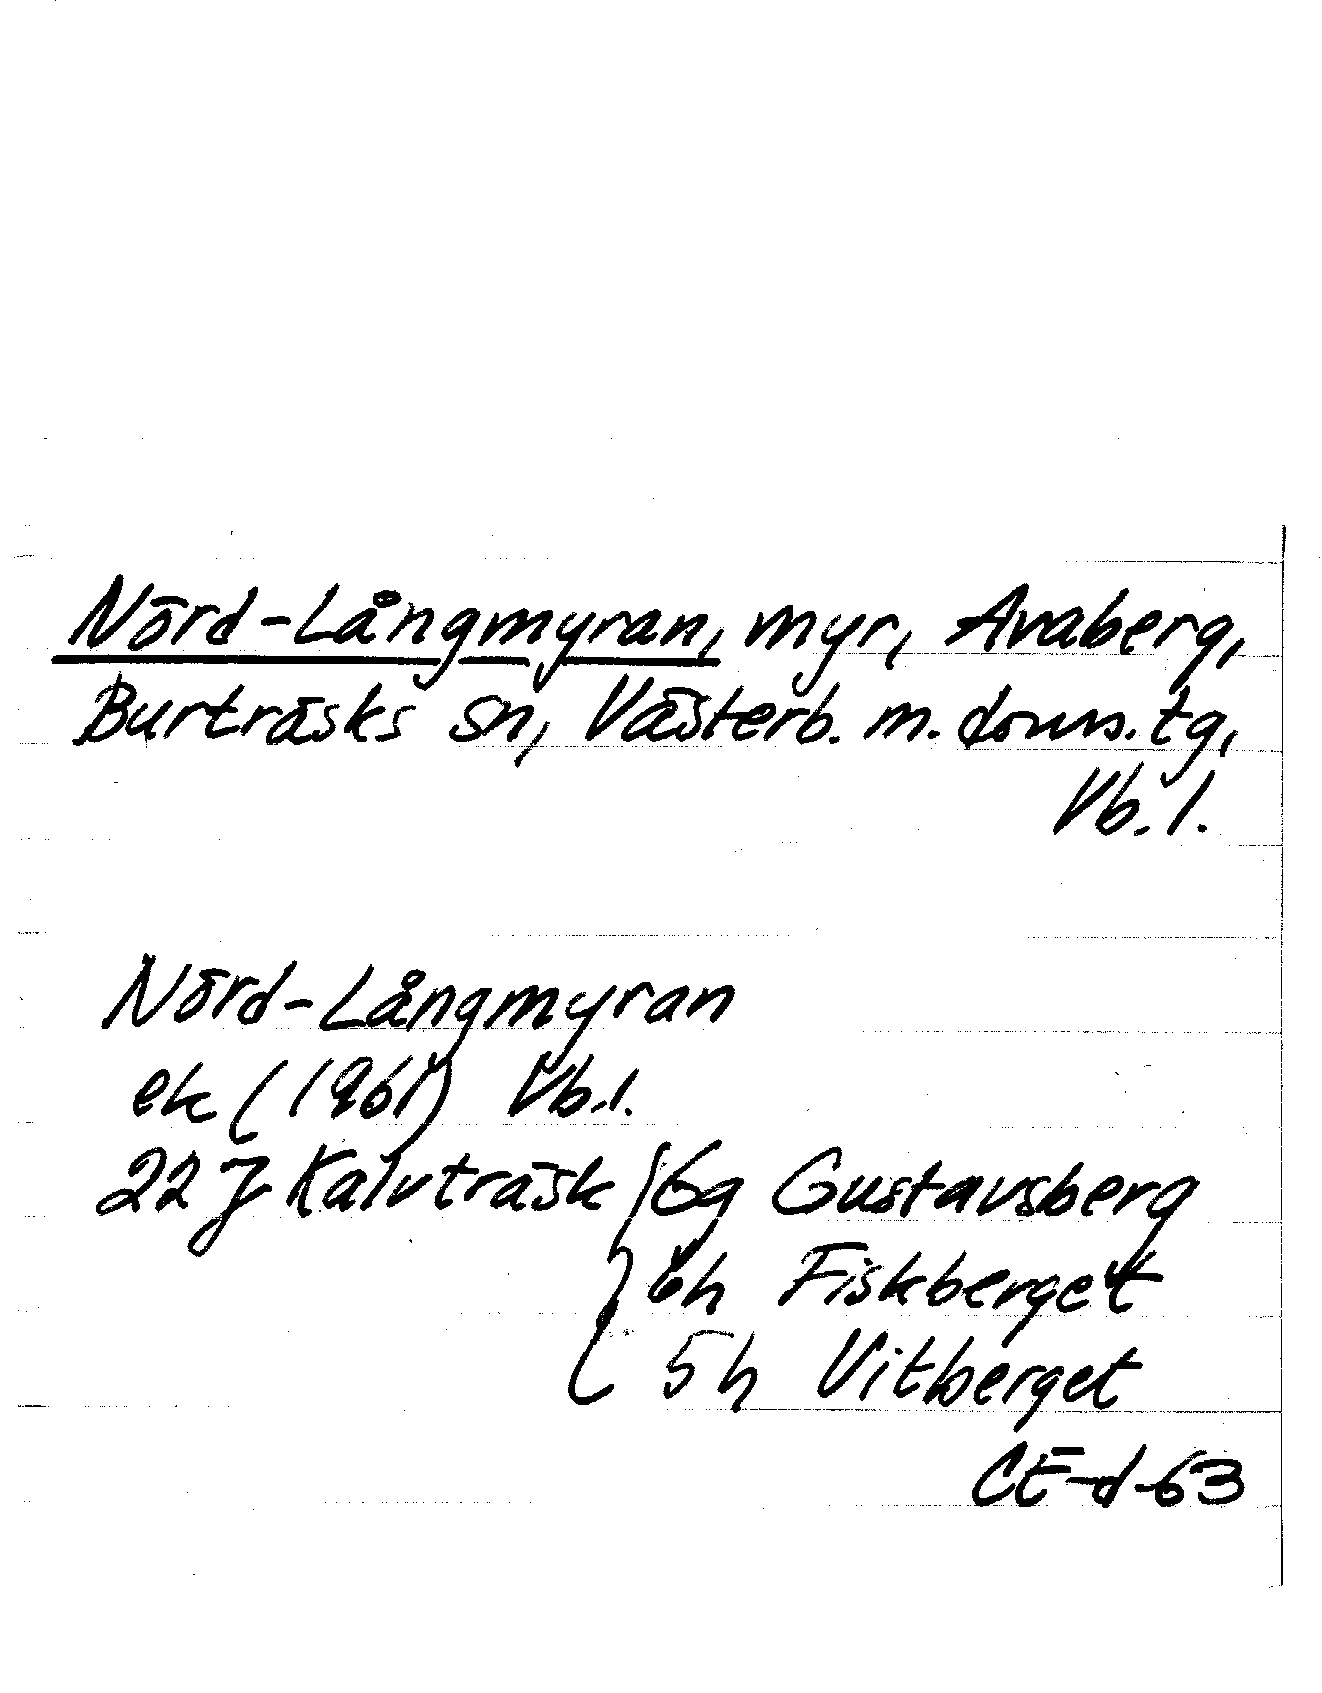 Nörd-Långmyran, myr, Avaberg,
Burträsks sn, Västerb. m. doms. tg,
Vb. l.
Nörd-Långmyran
ek (1961) Vb. l.
22 J Kalvträsk 6g Gustavsberg
6h Fiskberget
5h Vitberget
CE-d-63